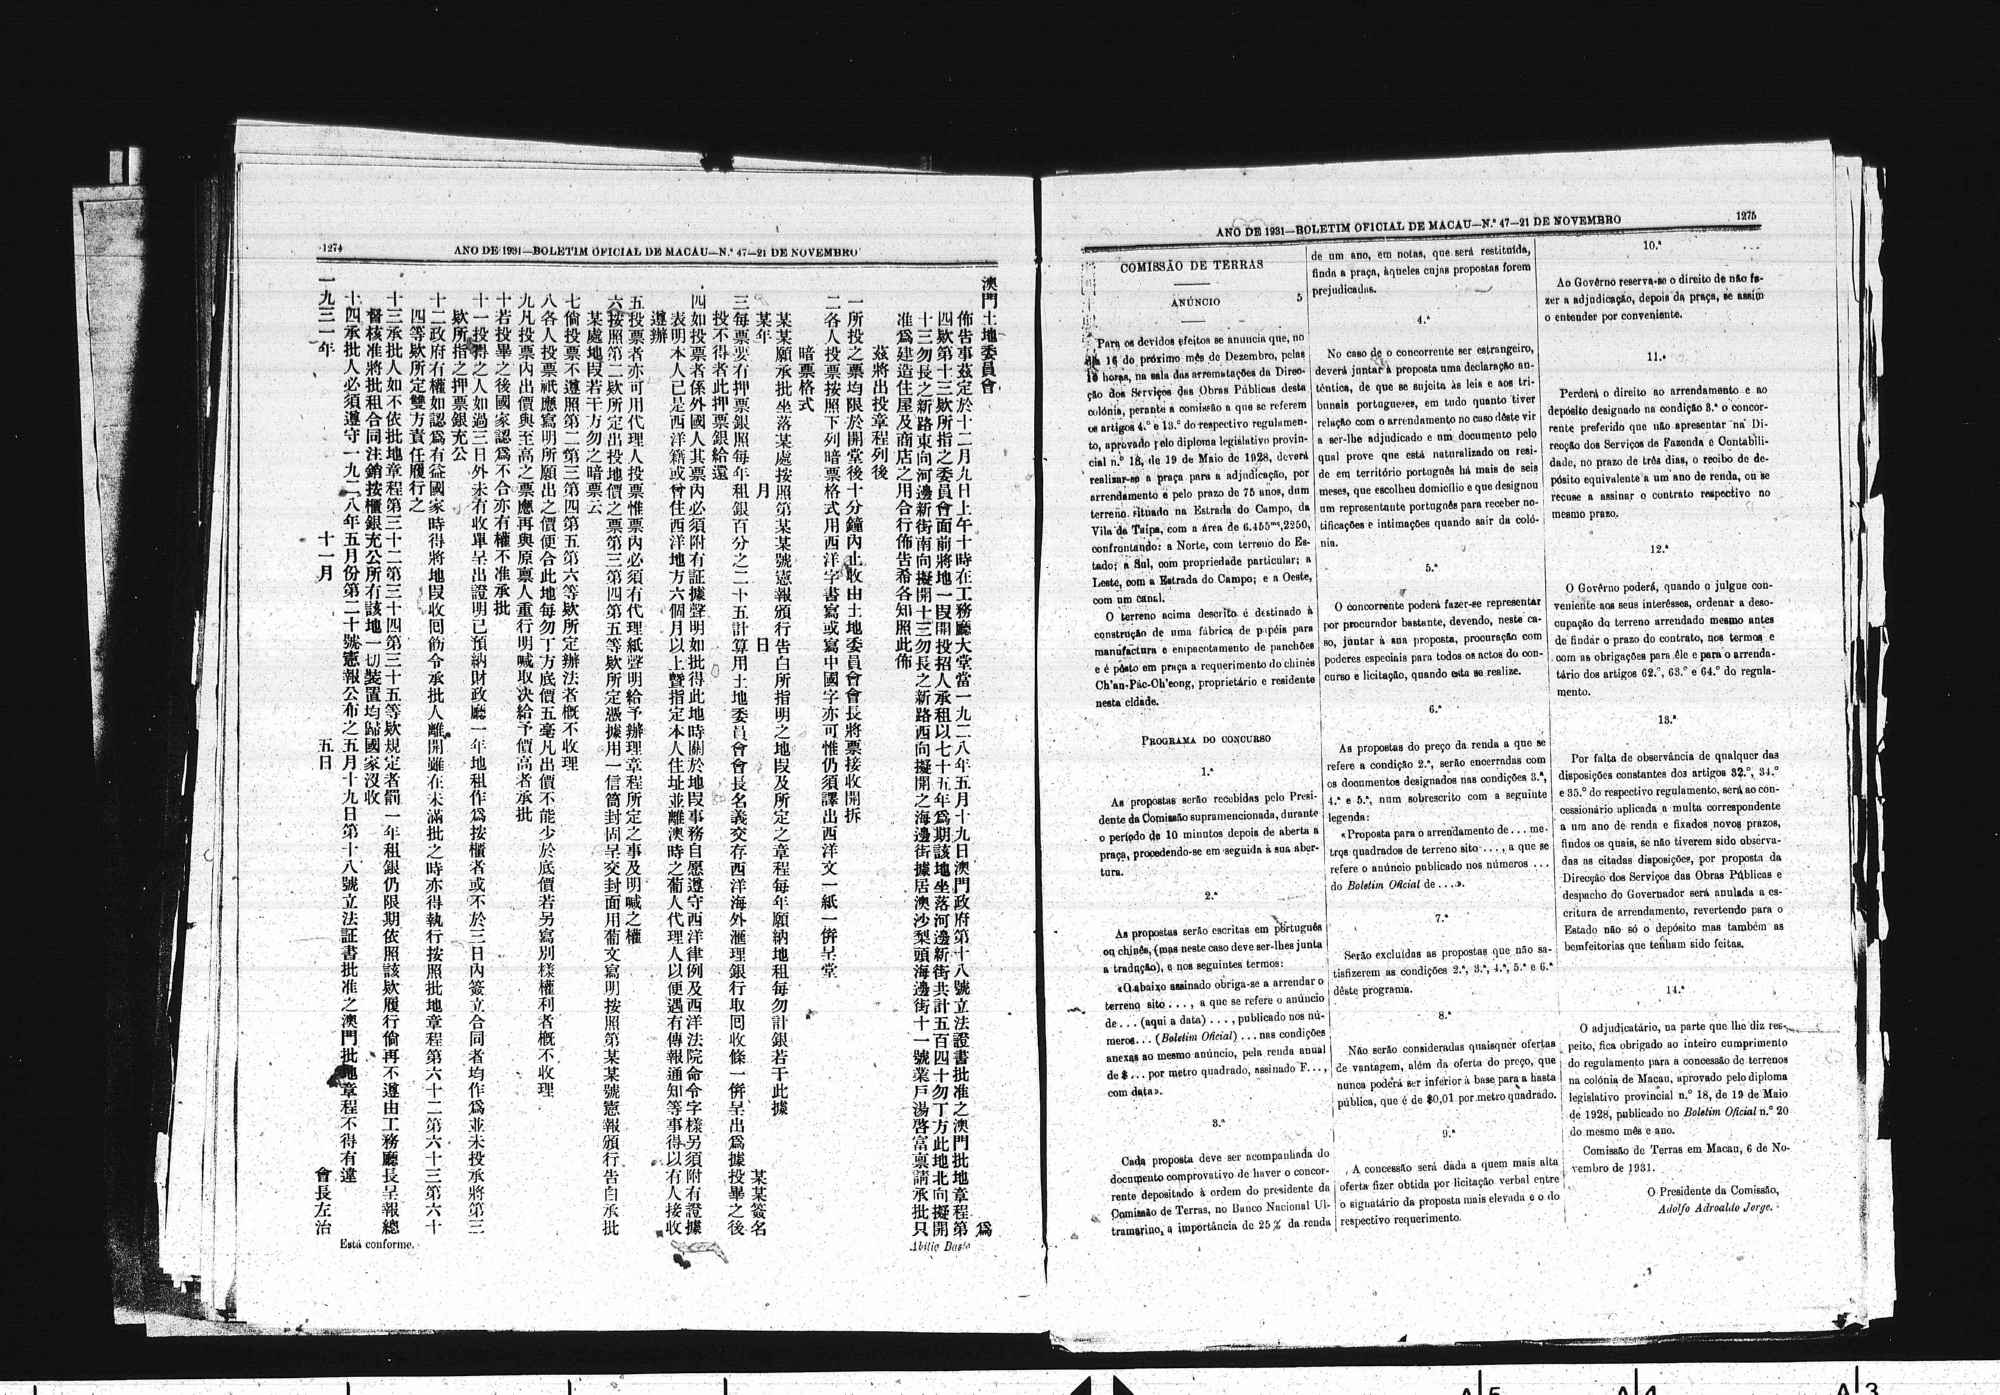 1274
ANO DE 1931—BOLETIM OFICIAL DE MACAU—N.º 47—21 DE NOVEMBRO
澳門土地委員會　為
佈告事茲定於十二月九日上午十時在工務廳大堂當一九二八年五月十九日澳門政府第十八號立法證書批准之澳門批地章程第
四欵第十三欵所指之委員會面前將地一叚開投招人承租以七十五年為期該地坐落河邊新街共計五百四十勿丁方此地北向擬開
十三勿長之新路東向河邊新街南向擬開十三勿長之新路西向擬開之海邊街據居澳沙梨頭海邊街十一號業戶湯啓富禀請承批只
准為建造住屋及商店之用合行佈告希各知照此佈
茲將出投章程列後
一所投之票均限於開堂後十分鐘內止收由土地委員會會長將票接收開拆
二各人投票按照下列暗票格式用西洋字書寫或寫中國字亦可惟仍須譯出西洋文一紙一倂呈堂
暗票格式
某某願承批坐落某處按照第某某號憲報頒行告白所指明之地叚及所定之章程每年願納地租每勿計銀若干此據
某年　月　日　某某簽名
三每票要有押票銀照每年租銀百分之二十五計算用土地委員會會長名義交存西洋海外滙理銀行取囘收條一倂呈出為據投畢之後
投不得者此押票銀給還
四如投票者係外國人其票內必須附有証據聲明如批得此地時關於地叚事務自愿遵守西洋律例及西洋法院命令字樣另須附有證據
表明本人已是西洋籍或曾住西洋地方六個月以上曁指定本人住址並離澳時之葡人代理人以便遇有傳報通知等事得以有人接收
遵辦
五投票者亦可用代理人投票惟票內必須有代理紙聲明給予辦理章程所定之事及明喊之權
六按照第二欵所定出投地價之票第三第四第五等欵所定憑據用一信筒封固呈交封面用葡文寫明按照第某某號憲報頒行告白承批
某處地叚若干方勿之暗票云
七倘投票不遵照第二第三第四第五第六等欵所定辦法者概不收理
八各人投票祇應寫明所願出之價便合此地每勿丁方底價五毫凡出價不能少於底價若另寫別樣權利者概不收理
九凡投票內出價與至高之票應再與原禀人重行明喊取決給予價高者承批
十若投畢之後國家認為不合亦有權不准承批
十一投得之人如過三日外未有收單呈出證明已預納財政廳一年地租作為按櫃者或不於三日內簽立合同者均作為並未投承將第三
欵所指之押票銀充公
十二政府有權如認為有益國家時得將地叚收囘飭令承批人離開雖在未滿批之時亦得執行按照批地章程第六十二第六十三第六十
四等欵所定雙方責任履行之
十三承批人如不依批地章程第三十二第三十四第三十五等欵規定者罰一年租銀仍限期依照該欵履行倘再不遵由工務廳長呈報總
督核准將批租合同注銷按櫃銀充公所有該地一切裝置均歸國家沒收
十四承批人必須遵守一九二八年五月份第二十號憲報公布之五月十九日第十八號立法証書批准之澳門批地章程不得有違
一九三一年　十一月　五日　會長左治
Está conforme.
Abílio Basto
ANO DE 1931—BOLETIM OFICIAL DE MACAU—N.º 47—21 DE NOVEMBRO
1275
COMISSÃO DE TERRAS
ANÚNCIO
5
Para os devidos efeitos se anuncia que, no
dia 16 do próximo mês de Dezembro, pelas
horas, na sala das arrematações da Direc-
ção dos Serviços das Obras Públicas desta
colónia, perante a comissão a que se referem
os artigos 4.º e 13.º do respectivo regulamen-
to, aprovado pelo diploma legislativo provin-
cial n.º 18, de 19 de Maio de 1928, deverá
realizar-se a praça para a adjudicação, por
arrendamento e pelo prazo de 75 anos, dum
terreno situado na Estrada do Campo, da
Vila da Taipa, com a área de 6.455m²,2250,
confrontando: a Norte, com terreno do Es-
tado; a Sul, com propriedade particular; a
Leste, com a Estrada do Campo; e a Oeste,
com um canal.
O terreno acima descrito é destinado à
construção de uma fábrica de papéis para
manufactura e empacotamento de panchões
e é pôsto em praça a requerimento do chinês
Ch'an-Pác-Ch'eong, proprietário e residente
nesta cidade.
PROGRAMA DO CONCURSO
1.ª
As propostas serão recebidas pelo Presi-
dente da Comissão supramencionada, durante
o período de 10 minutos depois de aberta a
praça, procedendo-se em seguida à sua aber-
tura.
2.ª
As propostas serão escritas em português
ou chinês, (mas neste caso deve ser-lhes junta
a tradução), e nos seguintes termos:
«O abaixo assinado obriga-se a arrendar o
terreno sito . . . , a que se refere o anúncio
de . . . (aqui a data) . . . , publicado nos nú-
meros. . . (Boletim Oficial) . . . nas condições
anexas ao mesmo anúncio, pela renda anual
de $ . . . por metro quadrado, assinado F. . . ,
com data».
3.ª
Cada proposta deve ser acompanhada do
documento comprovativo de haver o concor-
rente depositado à ordem do presidente da
Comissão de Terras, no Banco Nacional Ul-
tramarino, a importância de 25 % da renda
de um ano, em notas, que será restituída,
finda a praça, àqueles cujas propostas forem
prejudicadas.
4.ª
No caso de o concorrente ser estrangeiro,
deverá juntar à proposta uma declaração au-
têntica, de que se sujeita às leis e aos tri-
bunais portugueses, em tudo quanto tiver
relação com o arrendamento no caso dêste vir
a ser-lhe adjudicado e um documento pelo
qual prove que está naturalizado ou resi-
de em território português há mais de seis
meses, que escolheu domicílio e que designou
um representante português para receber no-
tificações e intimações quando sair da coló-
nia.
5.ª
O concorrente poderá fazer-se representar
por procurador bastante, devendo, neste ca-
so, juntar à sua proposta, procuração com
poderes especiais para todos os actos do con-
curso e licitação, quando esta se realize.
6.ª
As propostas do preço da renda a que se
refere a condição 2.ª, serão encerradas com
os documentos designados nas condições 3.ª,
4.ª e 5.ª, num sobrescrito com a seguinte
legenda:
«Proposta para o arrendamento de . . . me-
tros quadrados de terreno sito . . . , a que se
refere o anúncio publicado nos números . . .
do Boletim Oficial de . . .».
7.ª
Serão excluídas as propostas que não sa-
tisfizerem as condições 2.ª, 3.ª, 4.ª, 5.ª e 6.ª
dêste programa.
8.ª
Não serão consideradas quaisquer ofertas
de vantagem, além da oferta do preço, que
nunca poderá ser inferior à base para a hasta
pública, que é de $0,01 por metro quadrado.
9.ª
A concessão será dada a quem mais alta
oferta fizer obtida por licitação verbal entre
o signatário da proposta mais elevada e o do
respectivo requerimento.
10.ª
Ao Govêrno reserva-se o direito de não fa-
zer a adjudicação, depois da praça, se assim
o entender por conveniente.
11.ª
Perderá o direito ao arrendamento e ao
depósito designado na condição 3.ª o concor-
rente preferido que não apresentar na Di-
recção dos Serviços de Fazenda e Contabili-
dade, no prazo de três dias, o recibo de de-
pósito equivalente a um ano de renda, ou se
recuse a assinar o contrato respectivo no
mesmo prazo.
12.ª
O Govêrno poderá, quando o julgue con-
veniente aos seus interêsses, ordenar a deso-
cupação do terreno arrendado mesmo antes
de findar o prazo do contrato, nos termos e
com as obrigações para êle e para o arrenda-
tário dos artigos 62.º, 63.º e 64.º do regula-
mento.
13.ª
Por falta de observância de qualquer das
disposições constantes dos artigos 32.º, 34.º
e 35.º do respectivo regulamento, será ao con-
cessionário aplicada a multa correspondente
a um ano de renda e fixados novos prazos,
findos os quais, se não tiverem sido observa-
das as citadas disposições, por proposta da
Direcção dos Serviços das Obras Públicas e
despacho do Governador será anulada a es-
critura de arrendamento, revertendo para o
Estado não só o depósito mas também as
bemfeitorias que tenham sido feitas.
14.ª
O adjudicatário, na parte que lhe diz res-
peito, fica obrigado ao inteiro cumprimento
do regulamento para a concessão de terrenos
na colónia de Macau, aprovado pelo diploma
legislativo provincial n.º 18, de 19 de Maio
de 1928, publicado no Boletim Oficial n.º 20
do mesmo mês e ano.
Comissão de Terras em Macau, 6 de No-
vembro de 1931.
O Presidente da Comissão,
Adolfo Adroaldo Jorge.